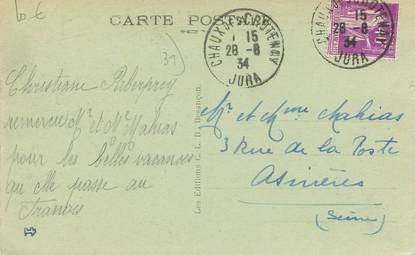 CARTE POSTALE
Christiane
remercie Mr et Me Mahias
pour les belles vacances
qu'elle passe au
Mr et Mme Mahias
3 Rue de la Poste
Asnières
(Seine)
Les Editions C. L. B. Besançon
CHAUX DES CROTENAY
15
28-8
34
JURA
CHAUX DES CROTENAY
15
28-8
34
JURA